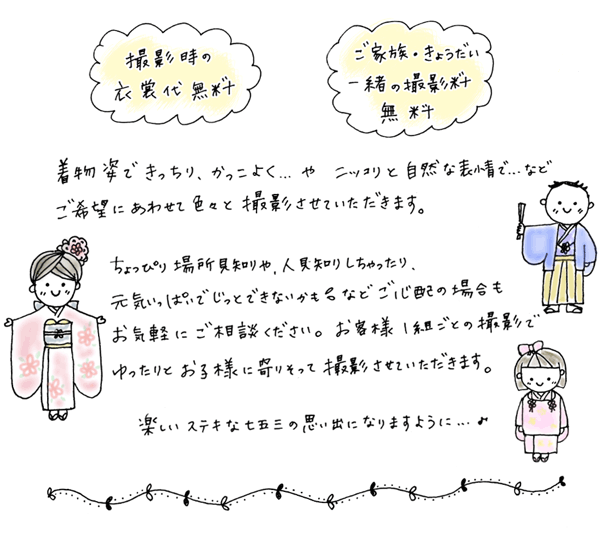 撮影時の
衣裳代無料
ご家族・きょうだい
一緒の撮影料
無料
着物姿できっちり、かっこよく…や ニッコリと自然な表情で…など
ご希望にあわせて色々と撮影させていただきます。
ちょっぴり場所見知りや、人見知りしちゃったり、
元気いっぱいでじっとできないかも などご心配の場合も
お気軽にご相談ください。お客様1組ごとの撮影で
ゆったりとお子様に寄りそって撮影させていただきます。
楽しいステキな七五三の思い出になりますように…♪